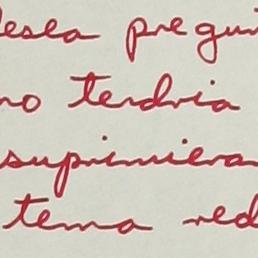 desea pregun
no tendria
suprimiera
tema red